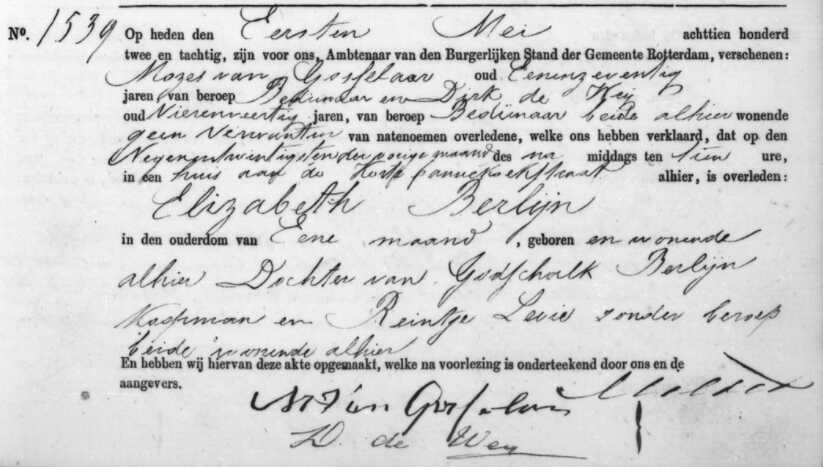 No. 1539 Op heden den Eersten Mei achttien honderd
twee en tachtig, zijn voor ons, Ambtenaar van den Burgerlijken Stand der Gemeente Rotterdam, verschenen:
Mozes van Gosselaar oud Eenenzeventig
jaren van beroep Bedienaar en Dirk de Weij
oud Vierenveertig jaren, van beroep Bedienaar beide alhier wonende
geen Verwanten van natenoemen overledene, welke ons hebben verklaard, dat op den
Negenentwintigsten der vorige maand des na middags ten tien ure,
in een huis aan de Korte Pannekoekstraat alhier, is overleden:
Elizabeth Berlijn
in den ouderdom van Eene maand, geboren en wonende
alhier Dochter van Godschalk Berlijn
Koopman en Reintje Levie zonder beroep
beide wonende alhier
En hebben wij hiervan deze akte opgemaakt, welke na voorlezing is onderteekend door ons en de
aangevers.
M Van Gosselaar
D. de Weij